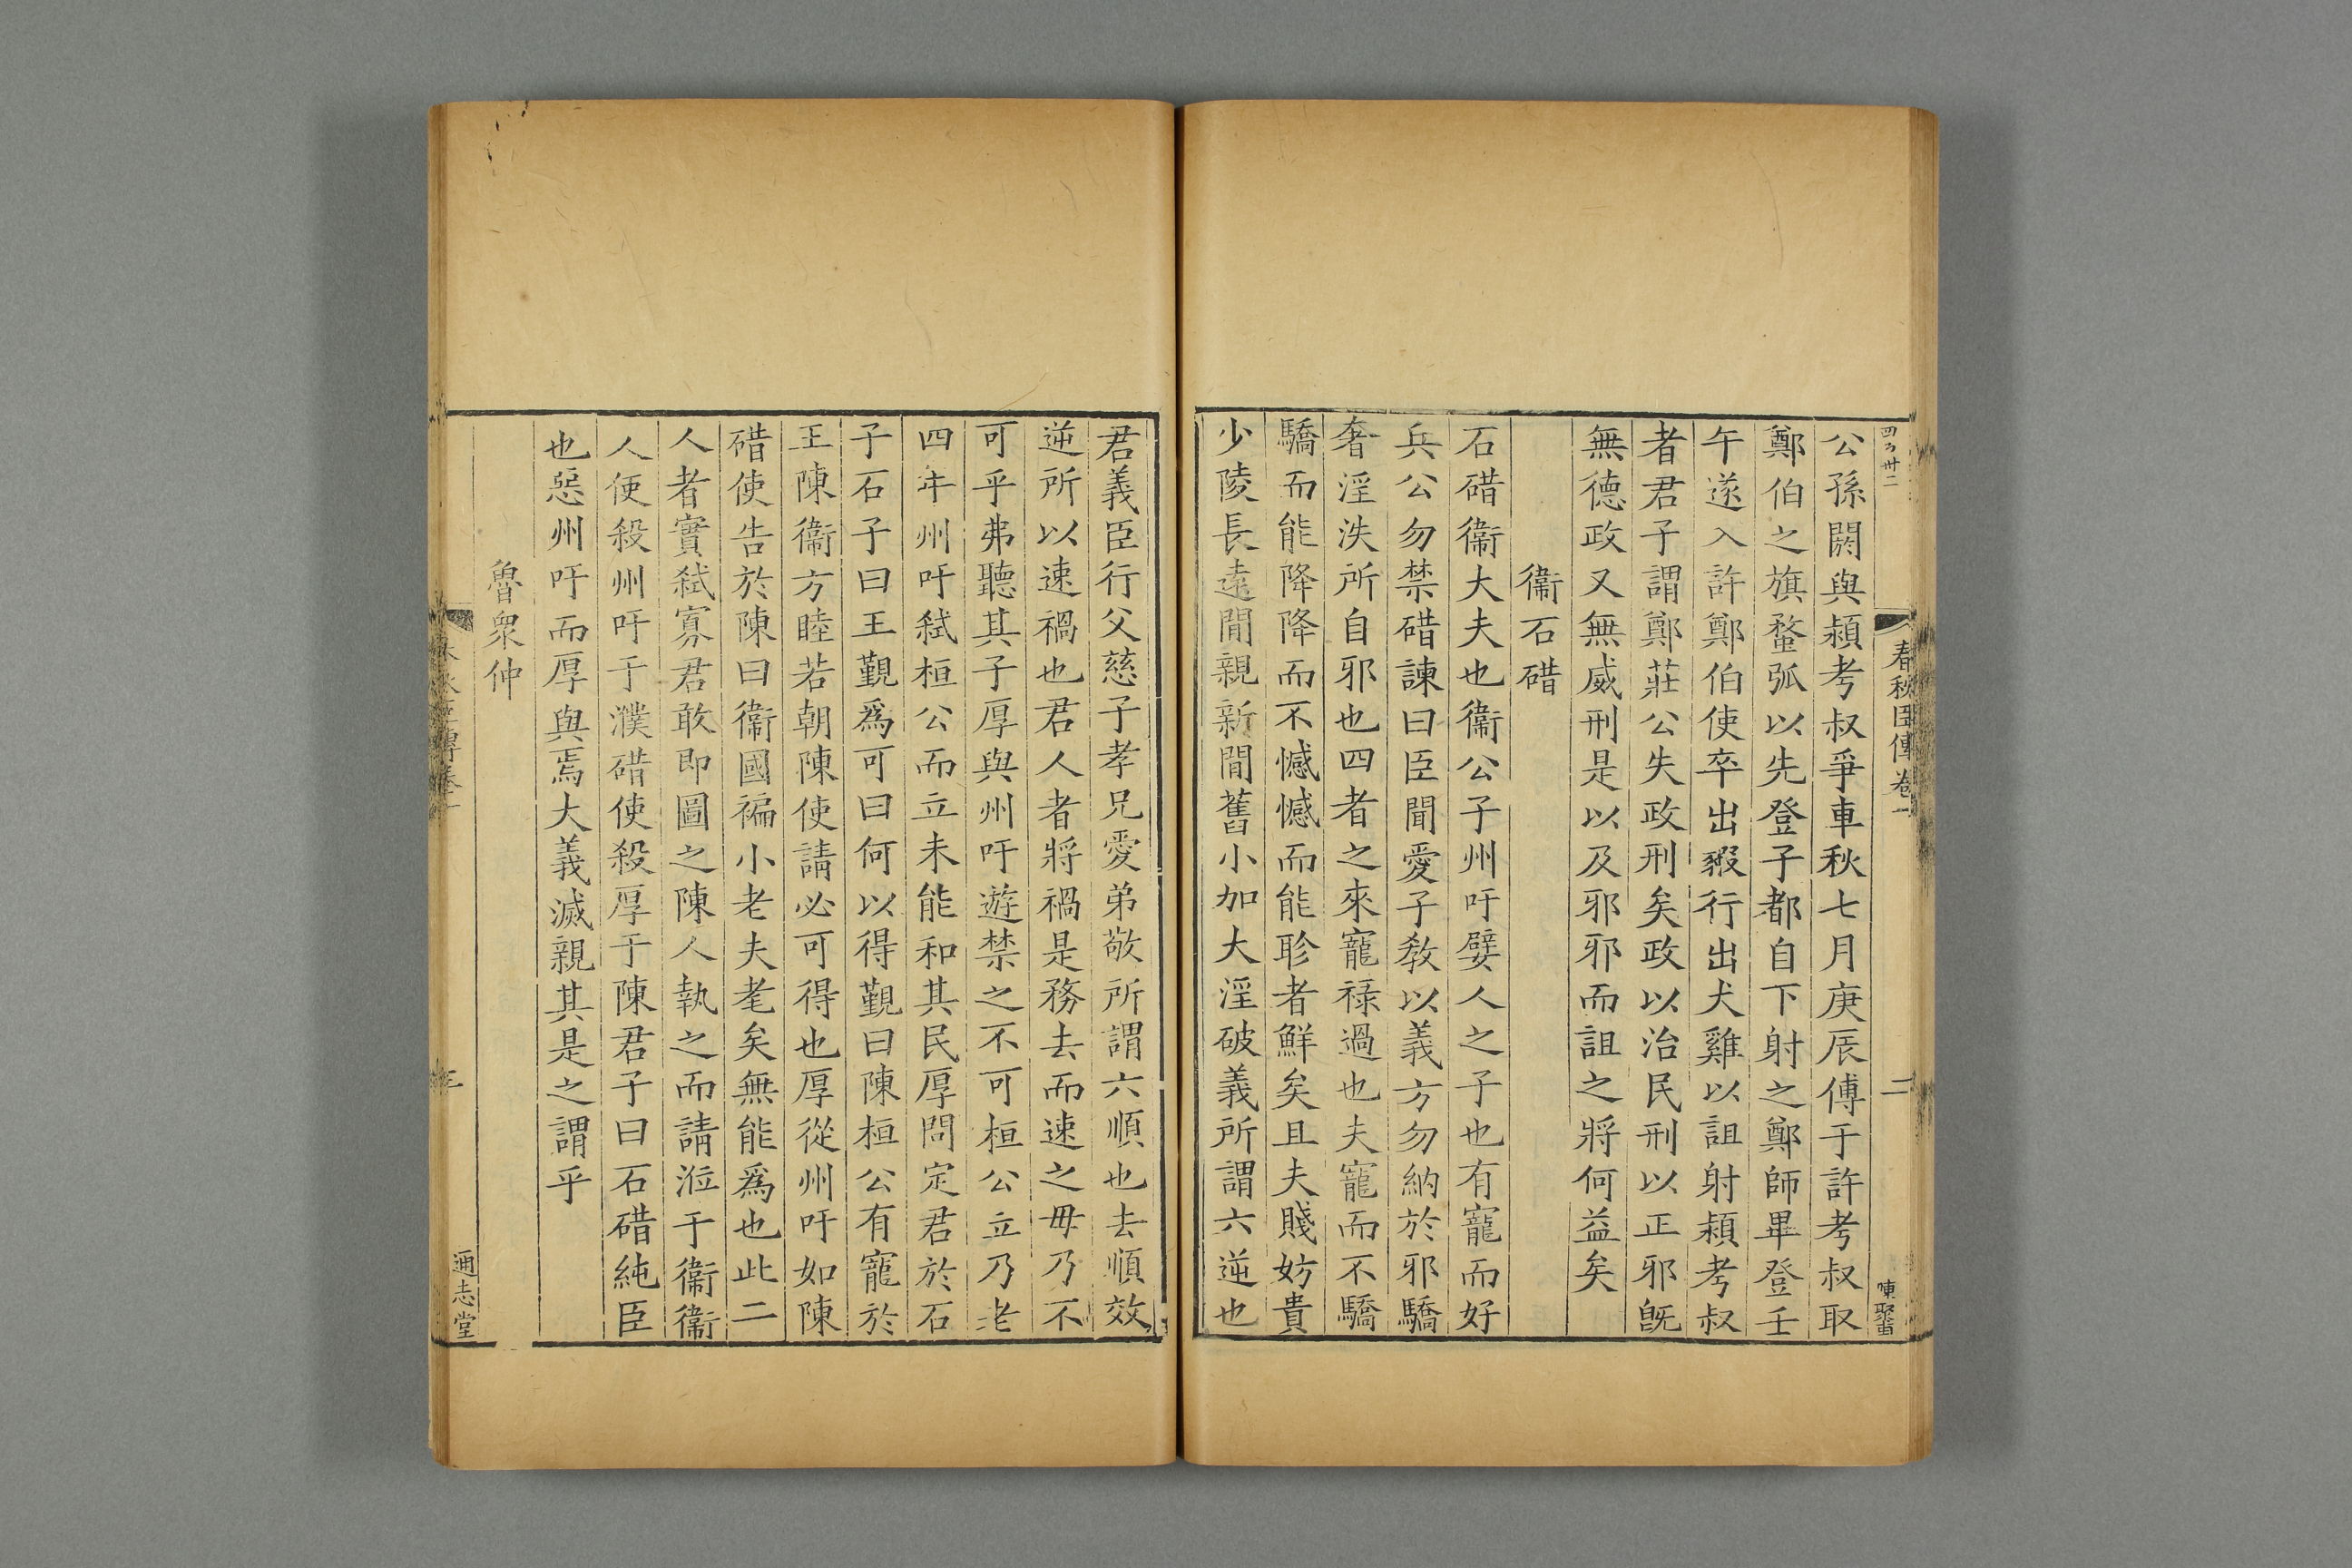 四百卅二
春秋臣傳卷一
二
公孫閼與潁考叔爭車秋七月庚辰傅于許考叔取
鄭伯之旗蝥弧以先登子都自下射之鄭師畢登壬
午遂入許鄭伯使卒出豭行出犬雞以詛射潁考叔
者君子謂鄭莊公失政刑矣政以治民刑以正邪旣
無德政又無威刑是以及邪邪而詛之將何益矣
衞石碏
石碏衞大夫也衞公子州吁嬖人之子也有寵而好
兵公勿禁碏諫曰臣聞愛子敎以義方勿納於邪驕
奢淫泆所自邪也四者之來寵祿過也夫寵而不驕
驕而能降降而不憾憾而能眕者鮮矣且夫賤妨貴
少陵長遠閒親新閒舊小加大淫破義所謂六逆也
君義臣行父慈子孝兄愛弟敬所謂六順也去順效
逆所以速禍也君人者將禍是務去而速之毋乃不
可乎弗聽其子厚與州吁遊禁之不可桓公立乃老
四年州吁弑桓公而立未能和其民厚問定君於石
子石子曰王覲爲可曰何以得覲曰陳桓公有寵於
王陳衞方睦若朝陳使請必可得也厚從州吁如陳
碏使告於陳曰衞國褊小老夫耄矣無能爲也此二
人者實弑寡君敢即圖之陳人執之而請涖于衞衞
人使殺州吁于濮碏使殺厚于陳君子曰石碏純臣
也惡州吁而厚與焉大義滅親其是之謂乎
魯衆仲
春秋臣傳卷一
三
通志堂